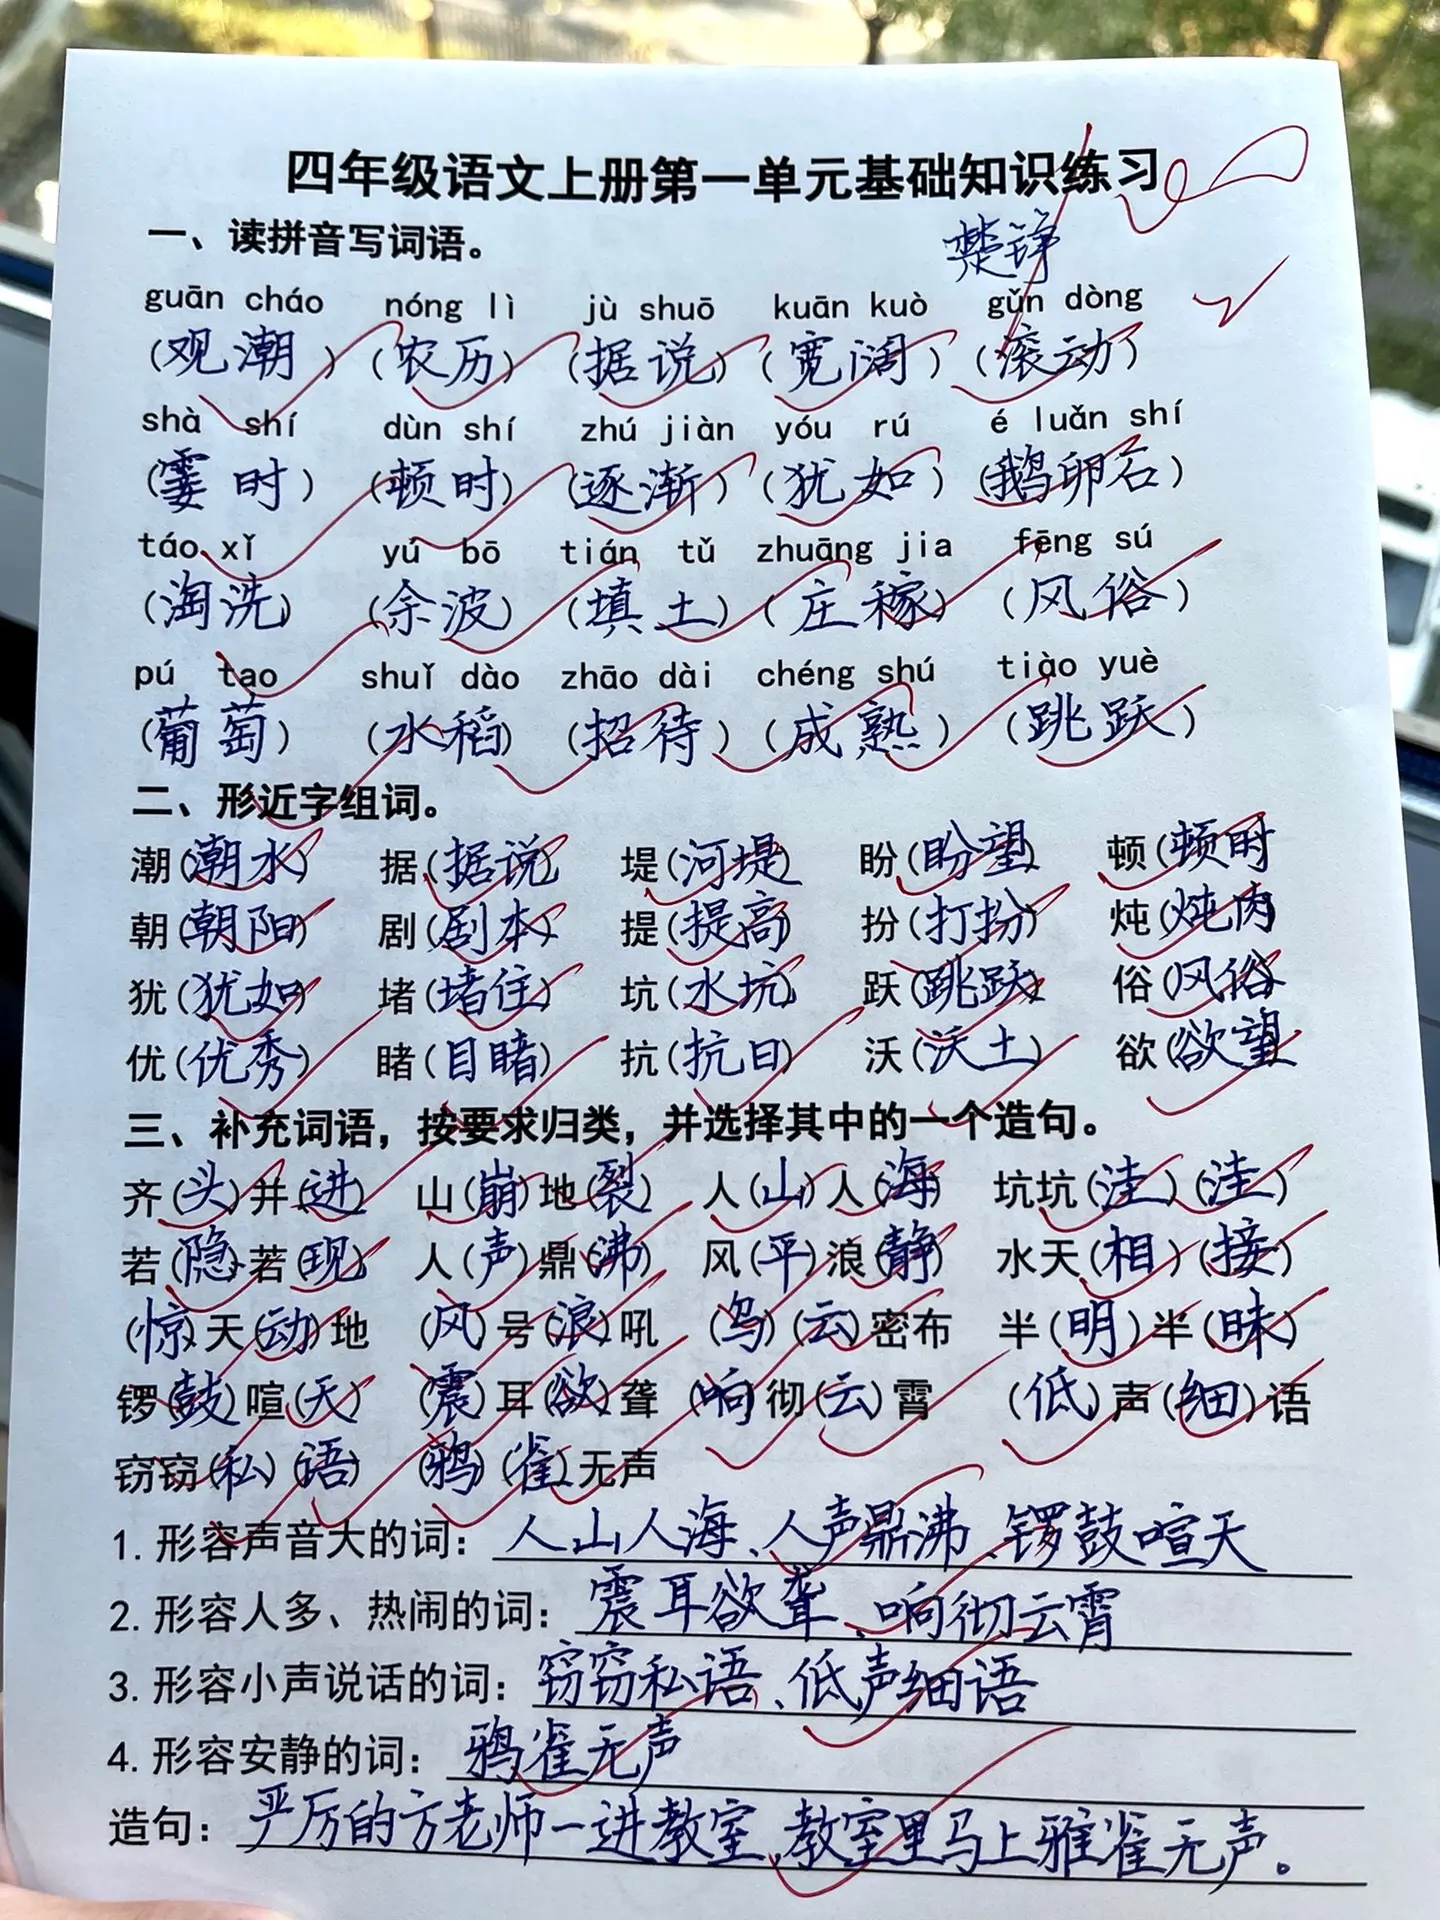 四年级语文上册第一单元基础知识练习
楚铮
一、读拼音写词语。
guān cháo nóng lì jù shuō kuān kuò gǔn dòng
(观潮) (农历) (据说) (宽阔) (滚动)
shà shí dùn shí zhú jiàn yóu rú é luǎn shí
(霎时) (顿时) (逐渐) (犹如) (鹅卵石)
táo xǐ yú bō tián tǔ zhuāng jia fēng sú
(淘洗) (余波) (填土) (庄稼) (风俗)
pú tao shuǐ dào zhāo dài chéng shú tiào yuè
(葡萄) (水稻) (招待) (成熟) (跳跃)
二、形近字组词。
潮(潮水) 据(据说) 堤(河堤) 盼(盼望) 顿(顿时)
朝(朝阳) 剧(剧本) 提(提高) 扮(打扮) 炖(炖肉)
犹(犹如) 堵(堵住) 坑(水坑) 跃(跳跃) 俗(风俗)
优(优秀) 睹(目睹) 抗(抗日) 沃(沃土) 欲(欲望)
三、补充词语，按要求归类，并选择其中的一个造句。
齐(头)并(进) 山(崩)地(裂) 人(山)人(海) 坑坑(洼)(洼)
若(隐)若(现) 人(声)鼎(沸) 风(平)浪(静) 水天(相)(接)
(惊)天(动)地 (风)号(浪)吼 (乌)(云)密布 半(明)半(昧)
锣(鼓)喧(天) (震)耳(欲)聋 (响)彻(云)霄 (低)声(细)语
窃窃(私)(语) (鸦)(雀)无声
1.形容声音大的词：人山人海、人声鼎沸、锣鼓喧天
2.形容人多、热闹的词：震耳欲聋、响彻云霄
3.形容小声说话的词：窃窃私语、低声细语
4.形容安静的词：鸦雀无声
造句：严厉的方老师一进教室，教室里马上雅雀无声。